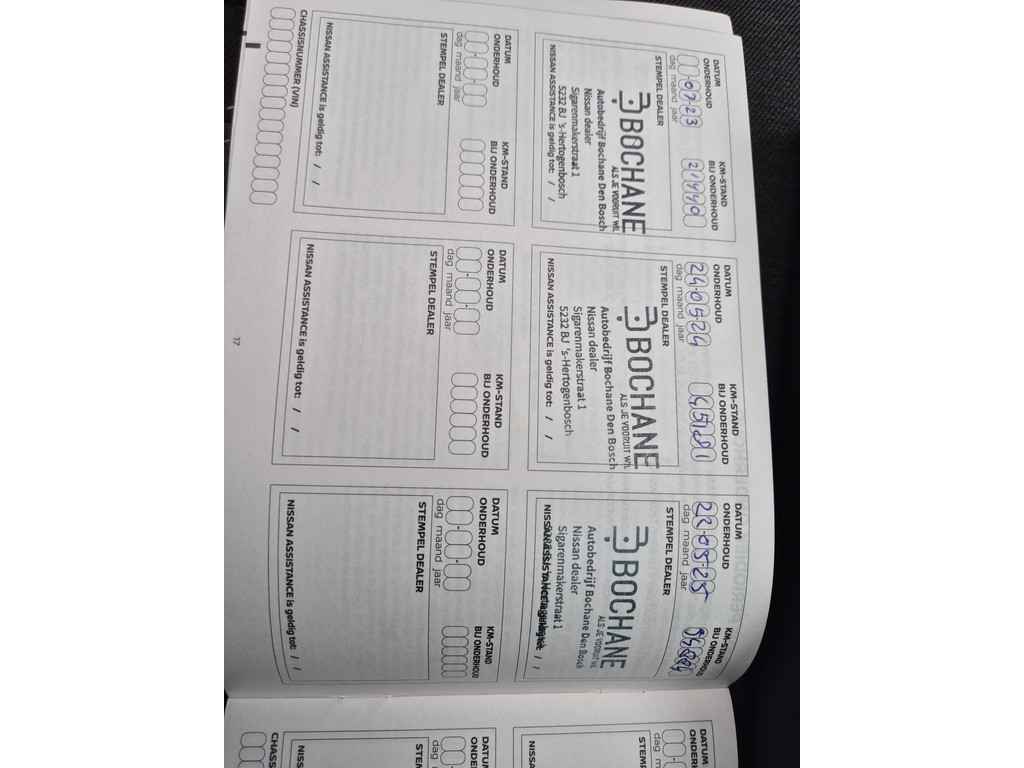 DATUM
ONDERHOUD
07-23
dag maand jaar
KM-STAND
BIJ ONDERHOUD
21440
STEMPEL DEALER
BOCHANE
ALS JE VOORUIT WIL
Autobedrijf Bochane Den Bosch
Nissan dealer
Sigarenmakerstraat 1
5232 BJ 's-Hertogenbosch
NISSAN ASSISTANCE is geldig tot: / /
DATUM
ONDERHOUD
24-05-24
dag maand jaar
KM-STAND
BIJ ONDERHOUD
45181
STEMPEL DEALER
BOCHANE
ALS JE VOORUIT WIL
Autobedrijf Bochane Den Bosch
Nissan dealer
Sigarenmakerstraat 1
5232 BJ 's-Hertogenbosch
NISSAN ASSISTANCE is geldig tot: / /
DATUM
ONDERHOUD
22-05-25
dag maand jaar
KM-STAND
BIJ ONDERHOUD
STEMPEL DEALER
BOCHANE
ALS JE VOORUIT WIL
Autobedrijf Bochane Den Bosch
Nissan dealer
Sigarenmakerstraat 1
NISSAN ASSISTANCE / /
DATUM
ONDERHOUD
dag maand jaar
KM-STAND
BIJ ONDERHOUD
STEMPEL DEALER
NISSAN ASSISTANCE is geldig tot: / /
DATUM
ONDERHOUD
dag maand jaar
KM-STAND
BIJ ONDERHOUD
STEMPEL DEALER
NISSAN ASSISTANCE is geldig tot: / /
DATUM
ONDERHOUD
dag maand jaar
KM-STAND
BIJ ONDERHOUD
STEMPEL DEALER
NISSAN ASSISTANCE is geldig tot: / /
CHASSISNUMMER (VIN)
17
DATUM
ONDERHOUD
dag maand
NISSAN
DATUM
ONDERHOUD
dag maand
STEM
NISSAN
CHASS